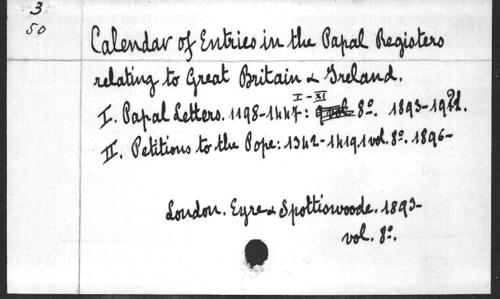 3
50
Calendar of Entries in the Papal Registers
relating to Great Britain & Ireland.
I - XI
I. Papal Letters. 1198-1447: 8°. 1893-19
II. Petitions to the Pope: 1342-1419. 1 vol. 8°. 1896-
London. Eyre & Spottiswoode. 1893-
vol. 8°.